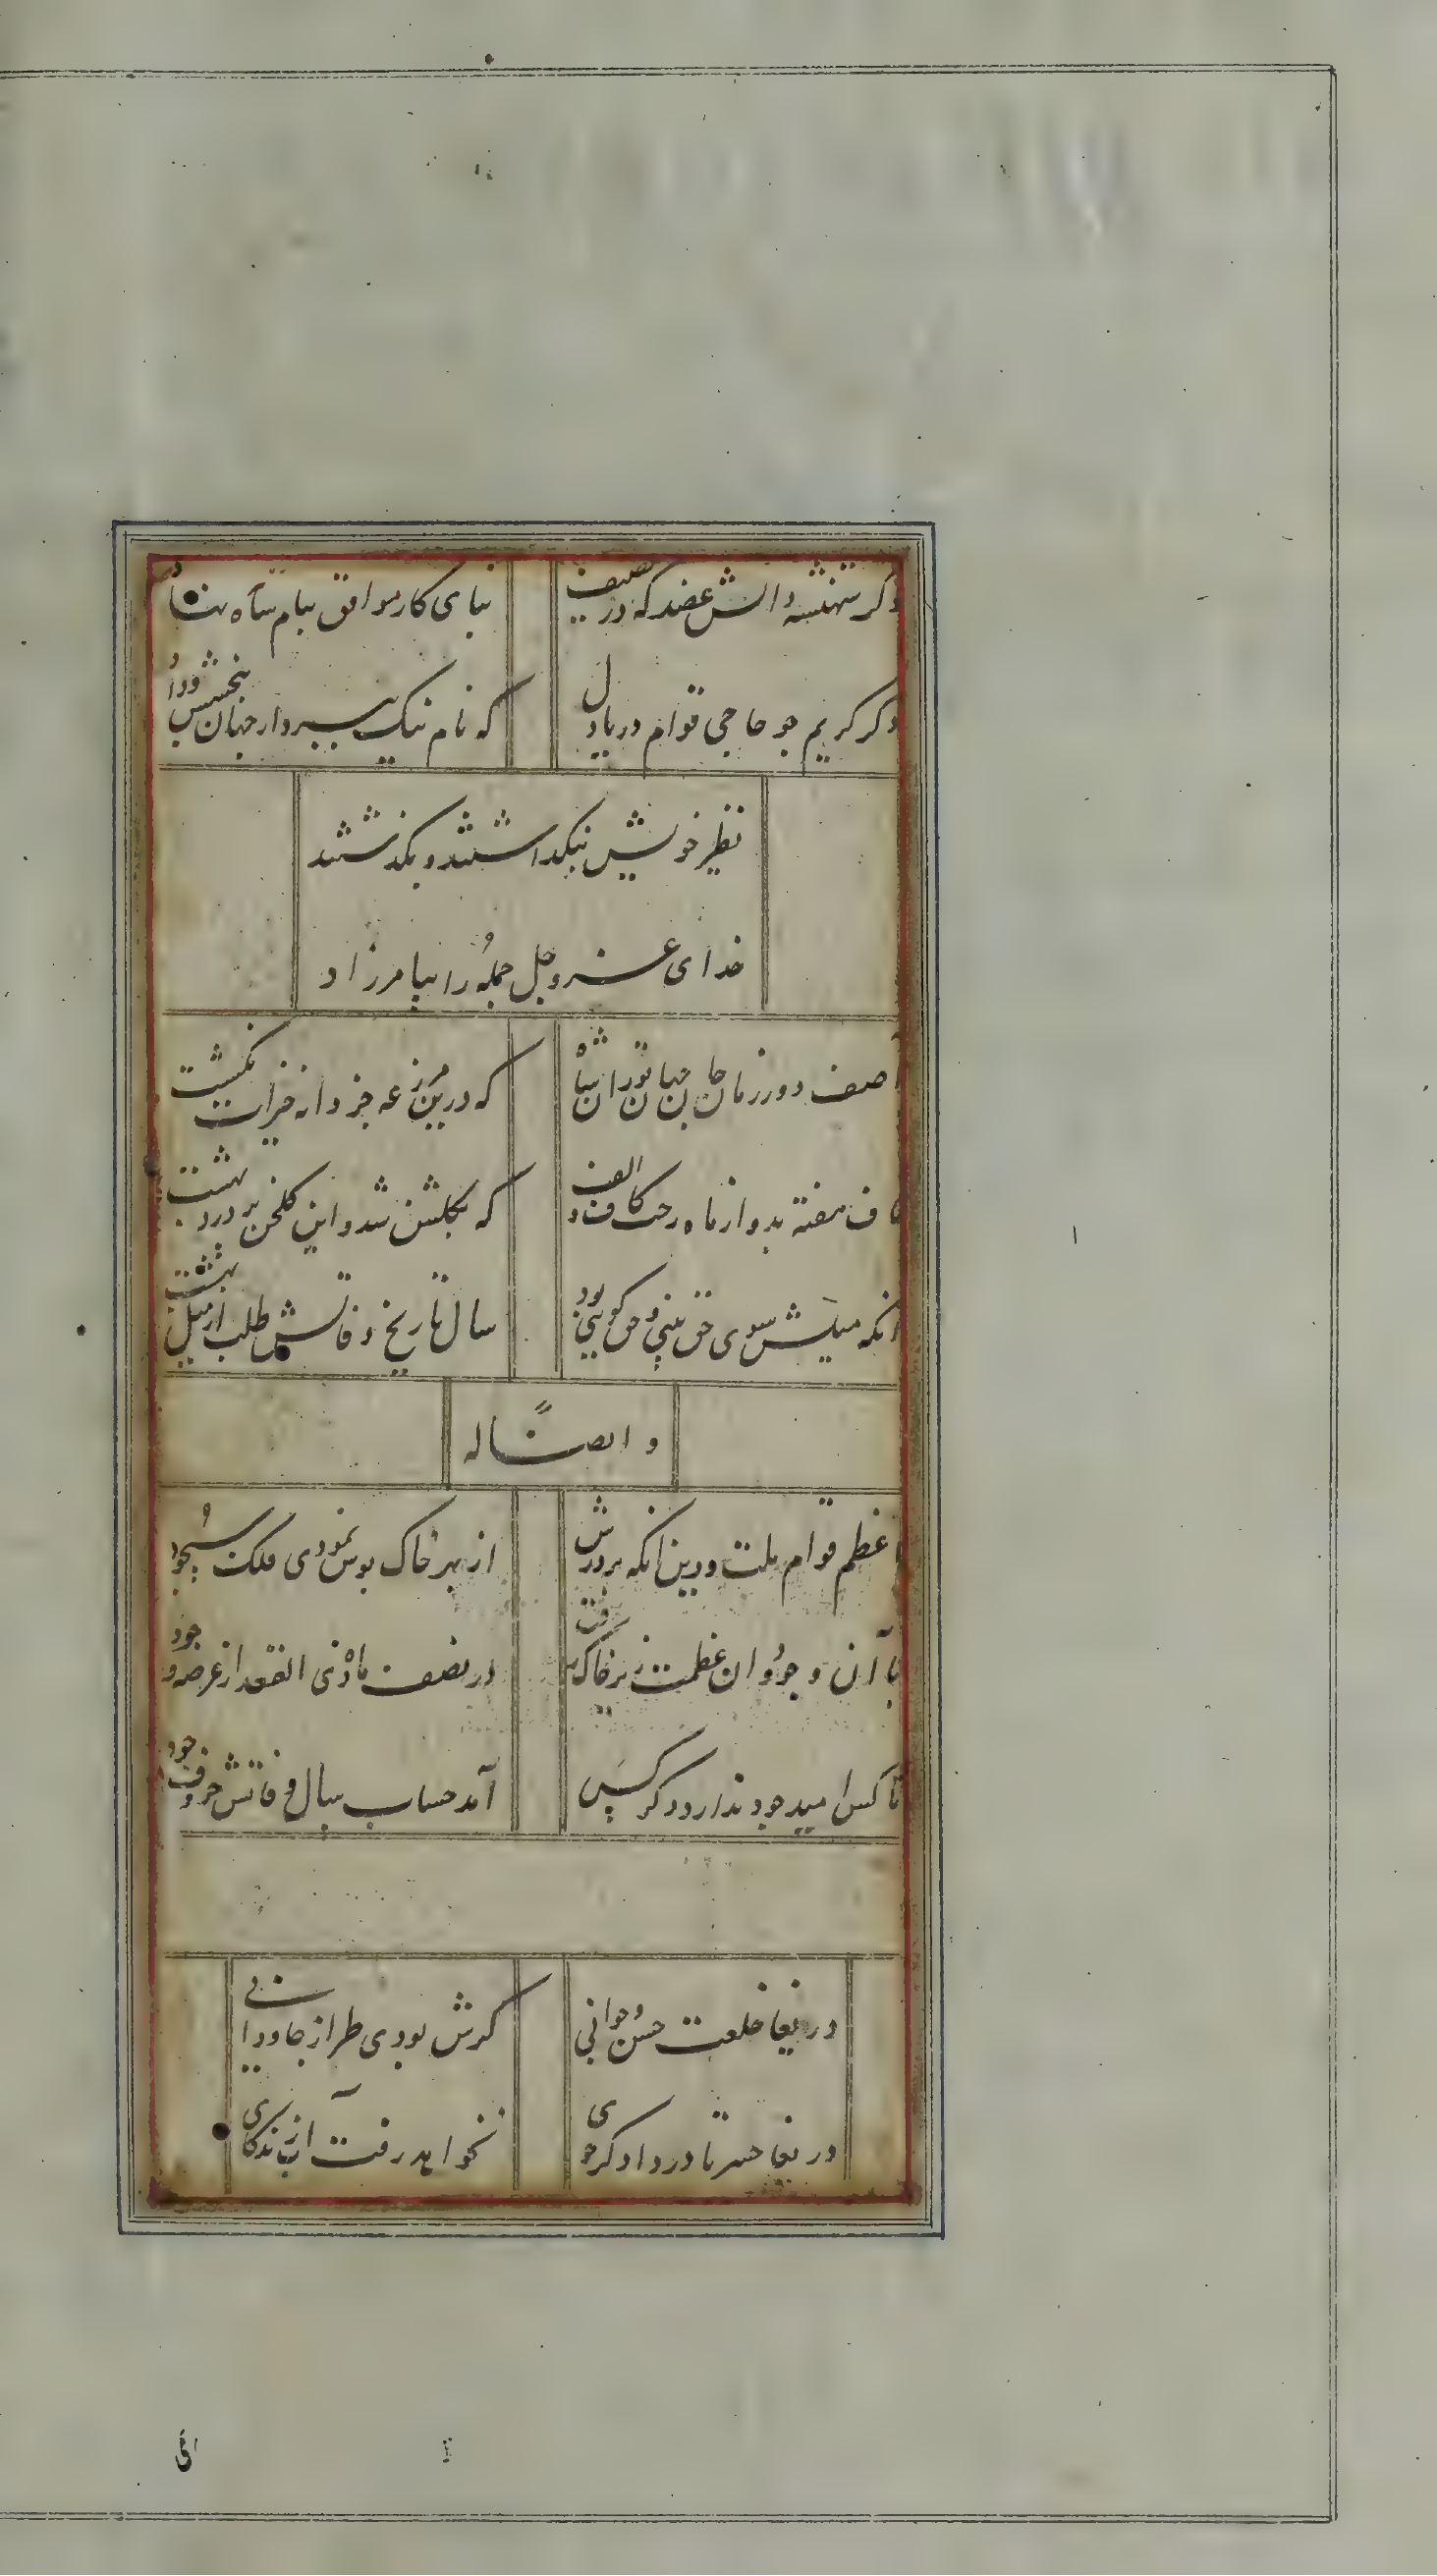 دکر شهنشه دانش عضد که در تصنیف
بنای کار مواقف بنام شاه نهاد
دکر کریم جو حاجی قوام دریا دل
که نام نیک ببرد از جهان ببخشش و داد
نظیر خویش بنکذاشتند و بکذشتند
خدای عز و جل جمله را بیامرزاد
آصف دور زمان جان جهان تورانشاه
که درین مزرعه جز دانه خیرات نکشت
ناف هفته بد و از ماه رجب کاف و الف
که بکلشن شد و این کلخن پر درد بهشت
آنکه میلش سوی حق بینی و حق کویی بود
سال تاریخ وفاتش طلب از میل بهشت
و ایضاً له
اعظم قوام ملت و دین آنکه بر درش
از بهر خاک بوس نمودی فلک سجود
با آن وجود و آن عظمت زیر خاک رفت
در نصف ماه ذی القعد از عرصه وجود
تا کس امید جود ندارد دکر ز کس
آمد حساب سال وفاتش حروف جود
دریغا خلعت حسن و جوانی
کرش بودی طراز جاودانی
دریغا حسرتا دردا کز جوی
نخواهد رفت آب زندکانی